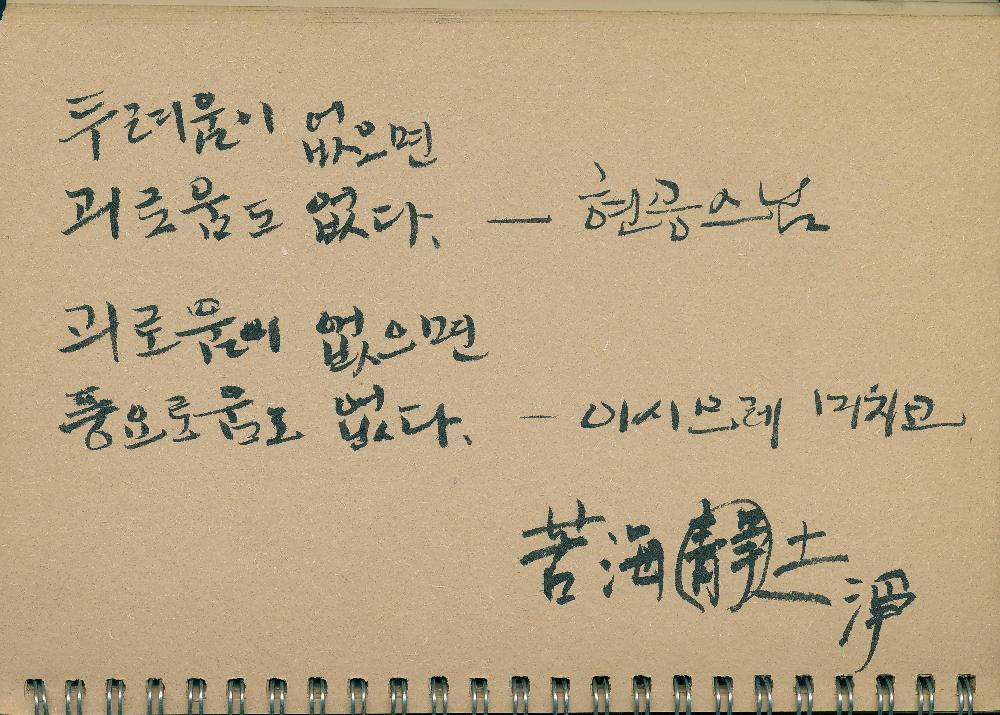 두려움이 없으면
괴로움도 없다. — 현공스님
괴로움이 없으면
풍요로움도 없다. - 이시므레 미치코
苦海靜土
淨